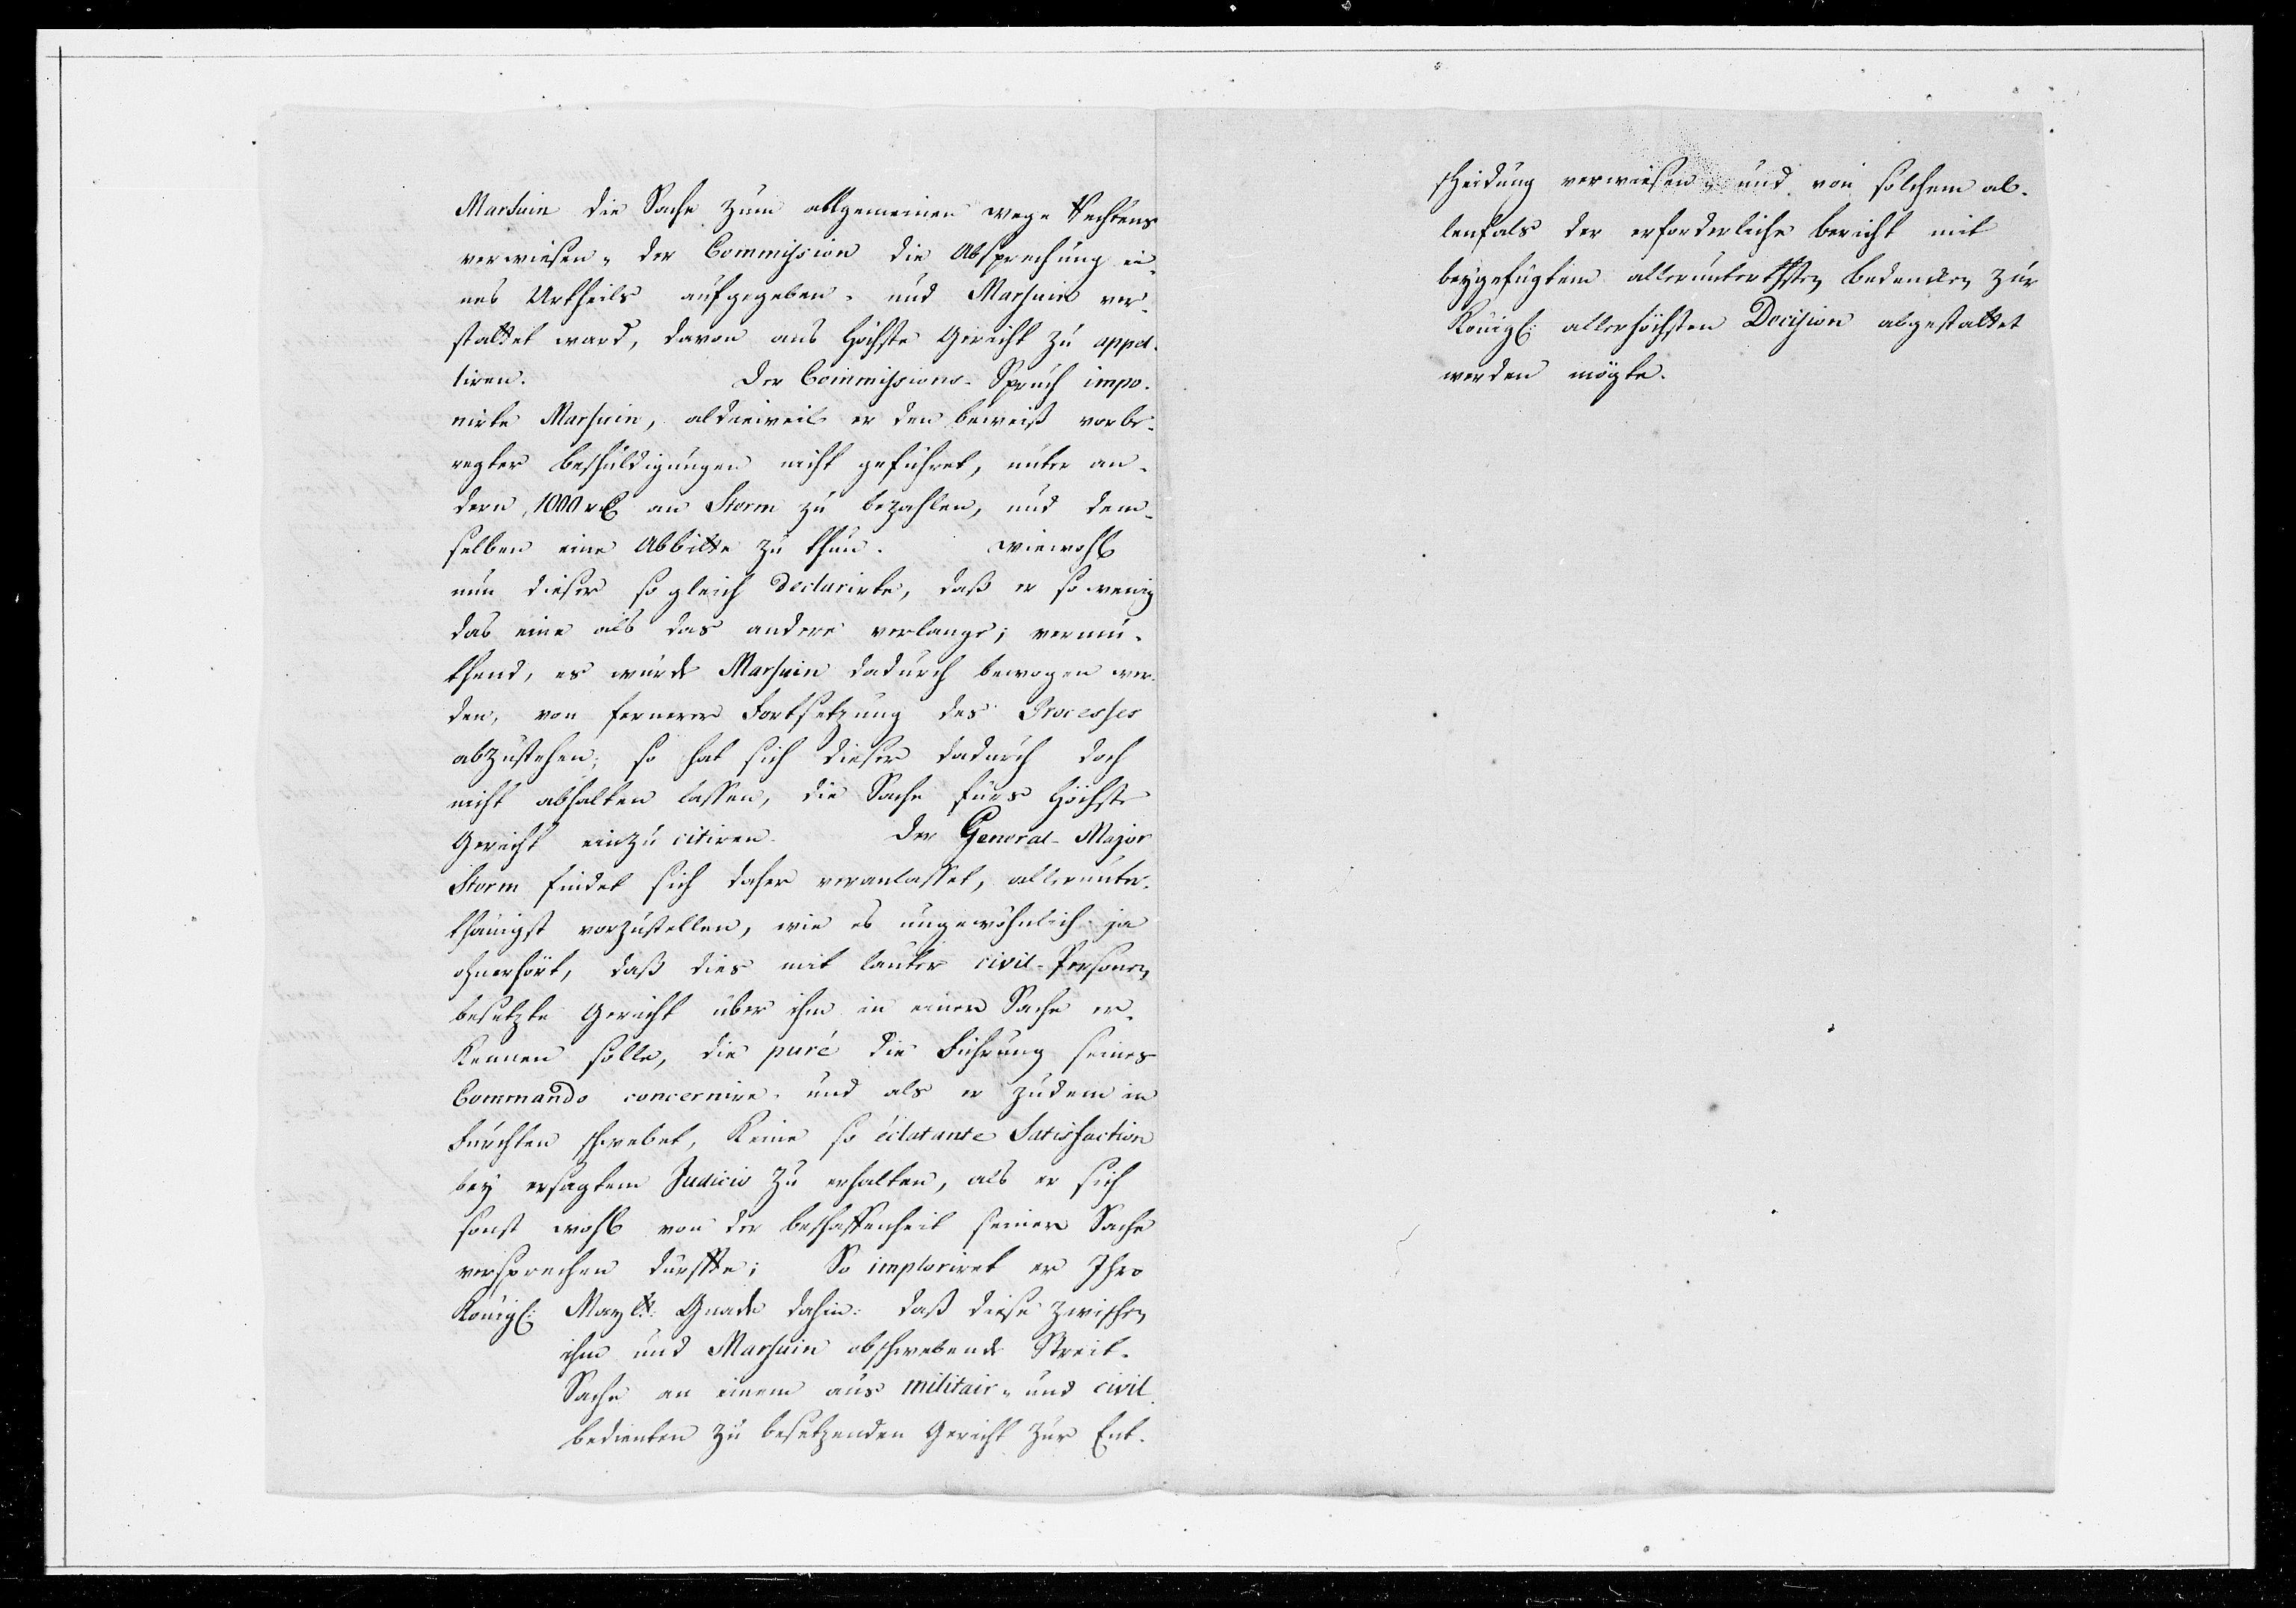 Marsuin die Sache zum allgemeinen wege Rechtens
verwiesen, der Commission die Absprechung ei-
nes Urtheils aufgegeben, und Marsuin ver-
stattet ward, davon ans Höchste Gericht zu appel-
liren. Der Commissions-Spruch impo-
nirte Marsuin, aldieweil er den beweiß vorbe-
regter beschuldigungen nicht geführet, unter an-
dern, 1000 rl an Storm zu bezahlen, und dem-
selben eine Abbitte zu thun. wiewohl
nun dieser so gleich declarirte, daß er so wenig
das eine als das andere verlange; vermu-
thend, es würde Marsuin dadurch bewogen wer-
den, von fernerer Fortsetzung des Processes
abzustehen; so hat sich dieser dadurch doch
nicht abhalten lassen, die Sache fürs Höchste
Gericht einzu citiren. Der General-Major
Storm findet sich daher veranlasset, allerunter-
thänigst vorzustellen, wie es ungewöhnlich ja
ohnerhört, daß dies mit lauter civil-Personen
besetzte Gericht über ihm in einer Sache er-
kennen solle, die puré die Führung seines
Commando concernire, und als er zudem in
Furchten schwebet, keine so éclatante Satisfaction
bey ersagtem Judicio zu erhalten, als er sich
sonst wohl von der beschaffenheit seiner Sache
versprechen durffte; So imploriret er Ihro
Königl: Maytt: Gnade dahin: daß diese zwischen
ihm und Marsuin obschwebende Streit-
Sache an einem aus militair- und civil-
bedienten zu besetzenden Gericht zur Ent-
scheidung verwiesen, und von solchem al-
lenfals der erforderliche bericht mit
beygefügtem allerunterthsten bedencken zur
Königl: allerhöchsten Decision abgestattet
werden mögte.